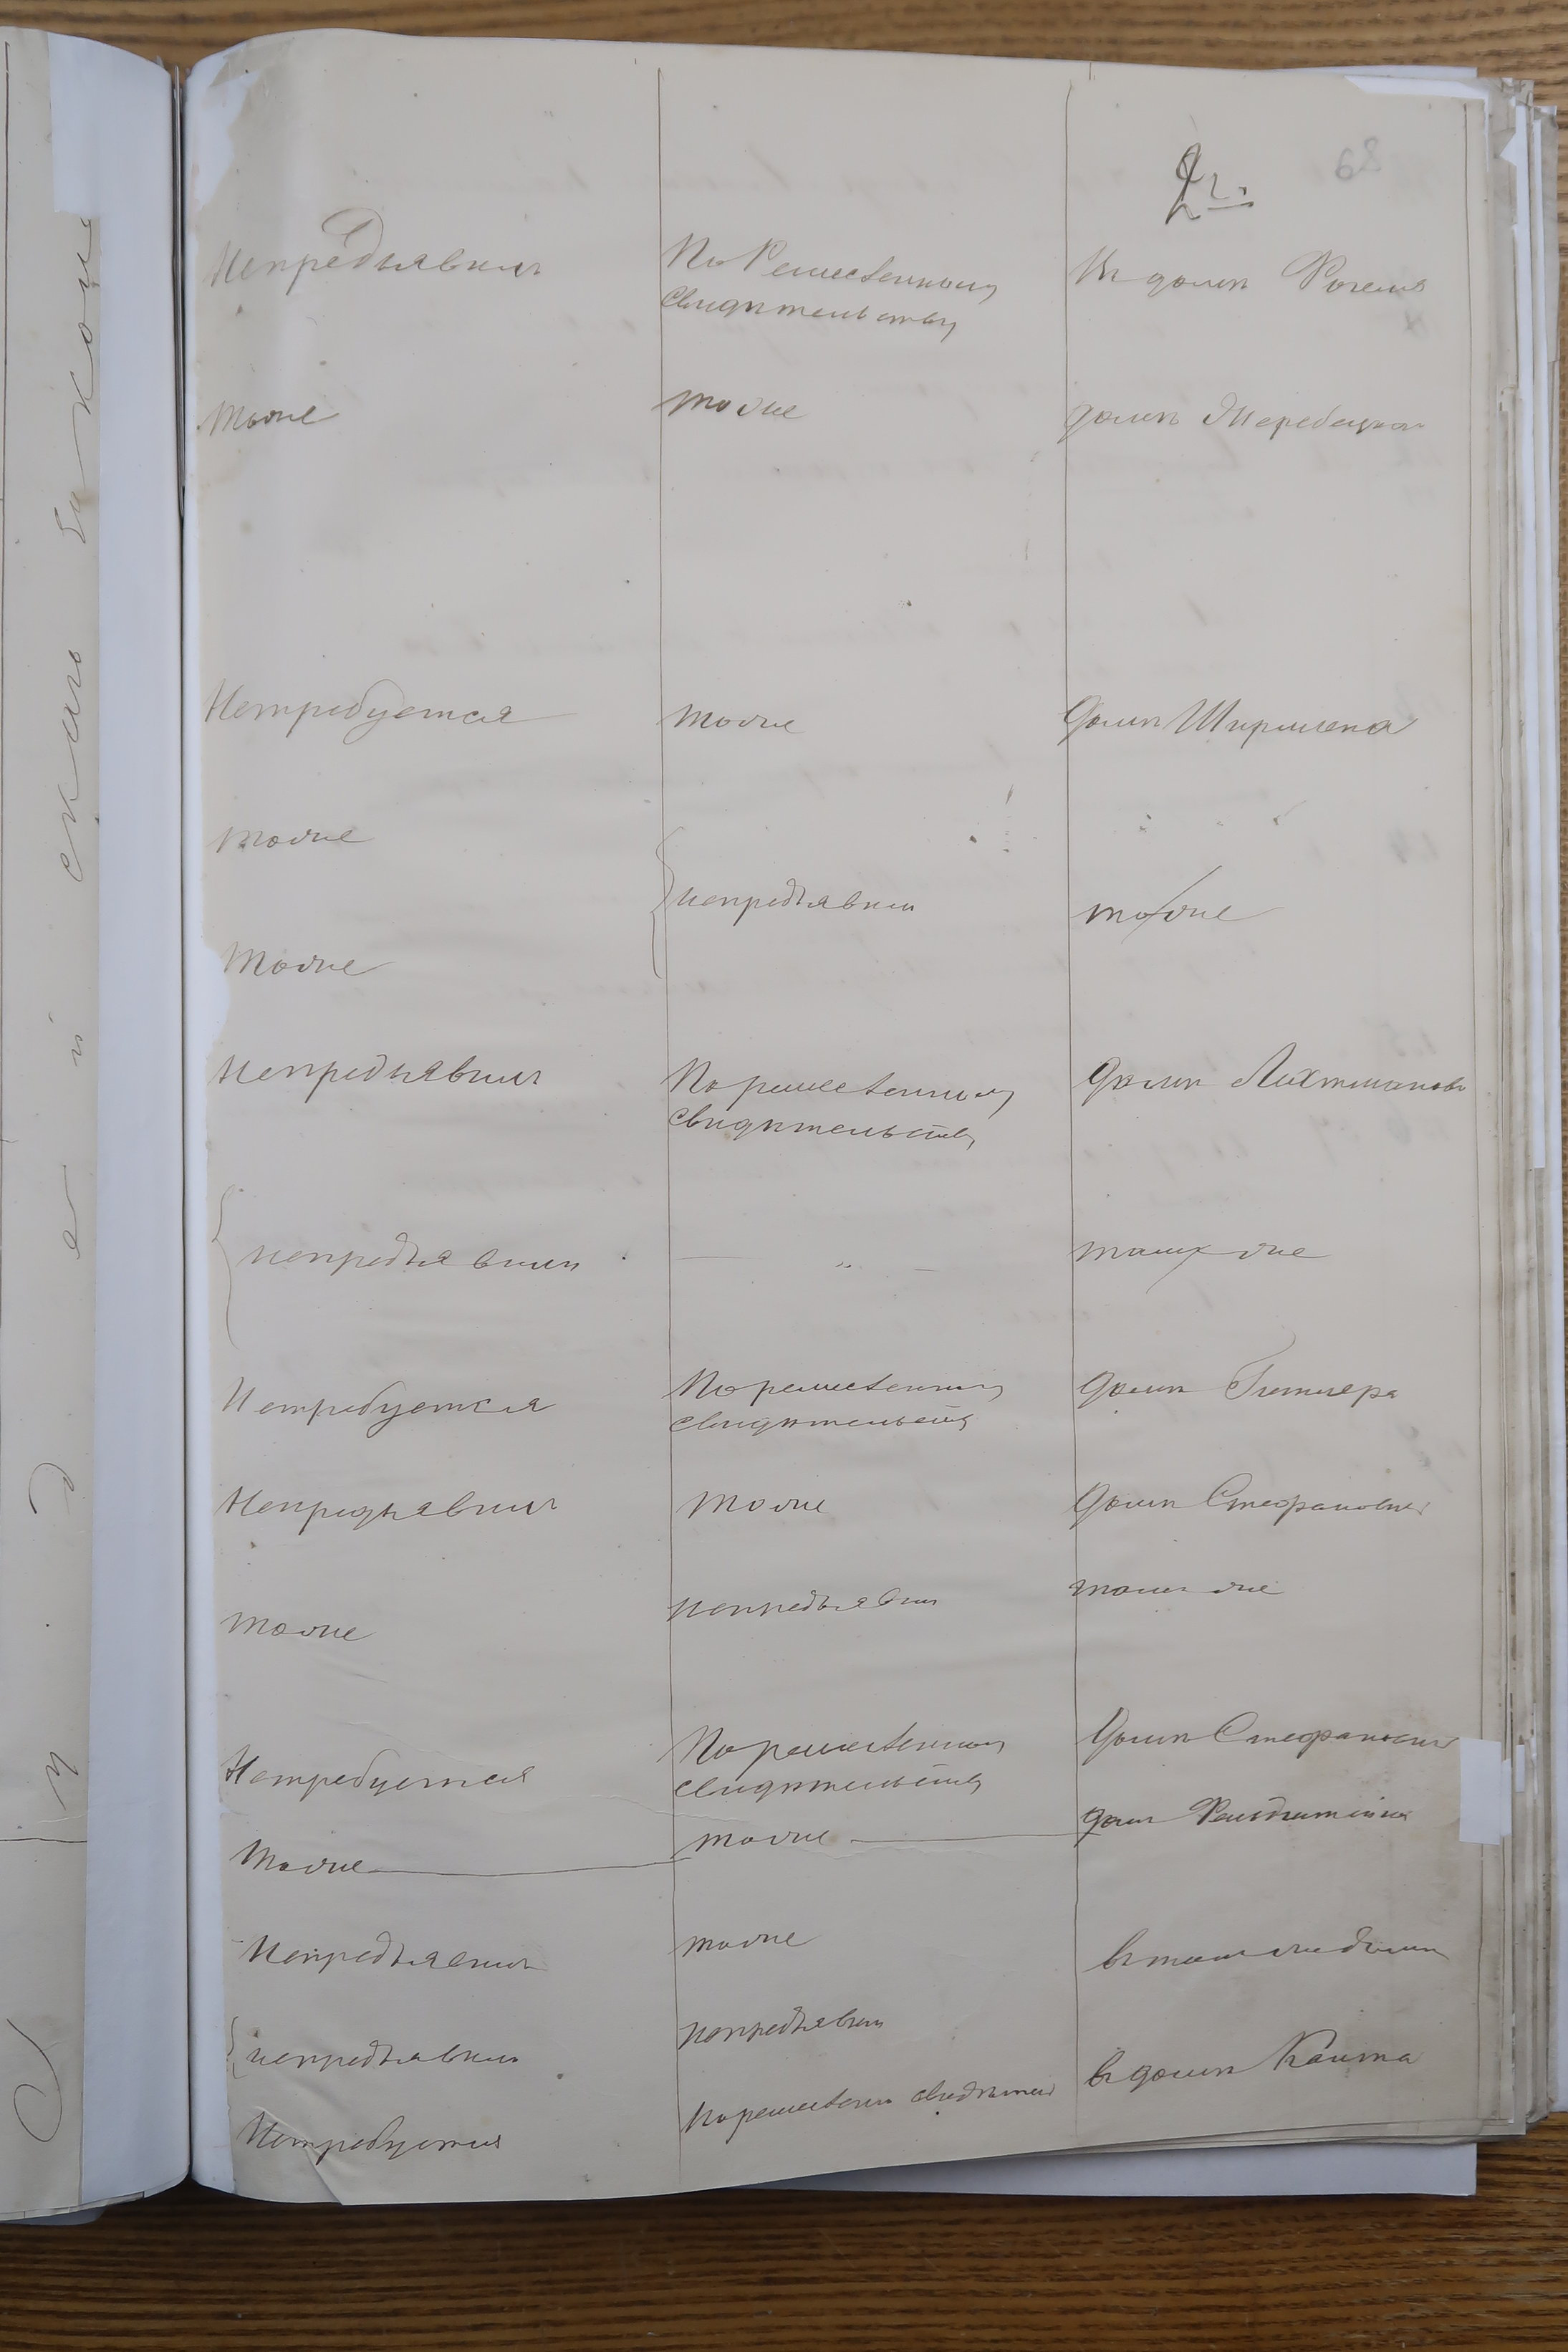 68
Непредъявилъ
По Ремесленному
свидѣтельству
Въ домѣ
тоже
тоже
домѣ Жеребецкаго
Нетребуется
тоже
домѣ Ширмена
тоже
непредъявил
тоже
тоже
Непредъявилъ
По ремесленному
свидѣтельству
домѣ Лихтманова
непредъявилъ
тамъ же
Нетребуется
По ремесленному
свидѣтельству
домѣ
Непредъявилъ
тоже
домѣ Стефановича
тоже
непредъявил
тамъ же
Нетребуется
По ремесленному
свидѣтельству
домѣ Стефановича
тоже
тоже
дом
Непредъявилъ
тоже
въ томъ же домѣ
непредъявилъ
непредъявил
въ домѣ Канта
Нетребуется
По ремеслен свидѣтел